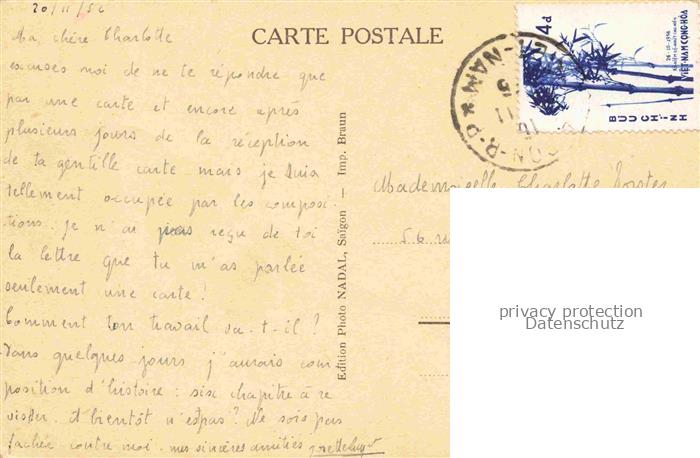 20/11/56
Ma chère Charlotte
excuses moi de ne te répondre que
par une carte et encore après
plusieurs jours de la réception
de ta gentille carte mais je suis
tellement occupée par les composi-
tions. Je n'ai pas reçu de toi
la lettre que tu m'as parlée
seulement une carte!
Comment ton travail va-t-il?
Dans quelques jours j'aurais com
position d'histoire: six chapitre à re
visser. A bientôt n'espas? Ne sois pas
fachée contre moi. mes sincères amitiés
CARTE POSTALE
Edition Photo NADAL, Saïgon — Imp. Braun
4đ
26-10-1956
VIỆT-NAM CỘNG-HÒA
BUU CHÍNH
Mademoiselle Charlotte
56
privacy protection
Datenschutz